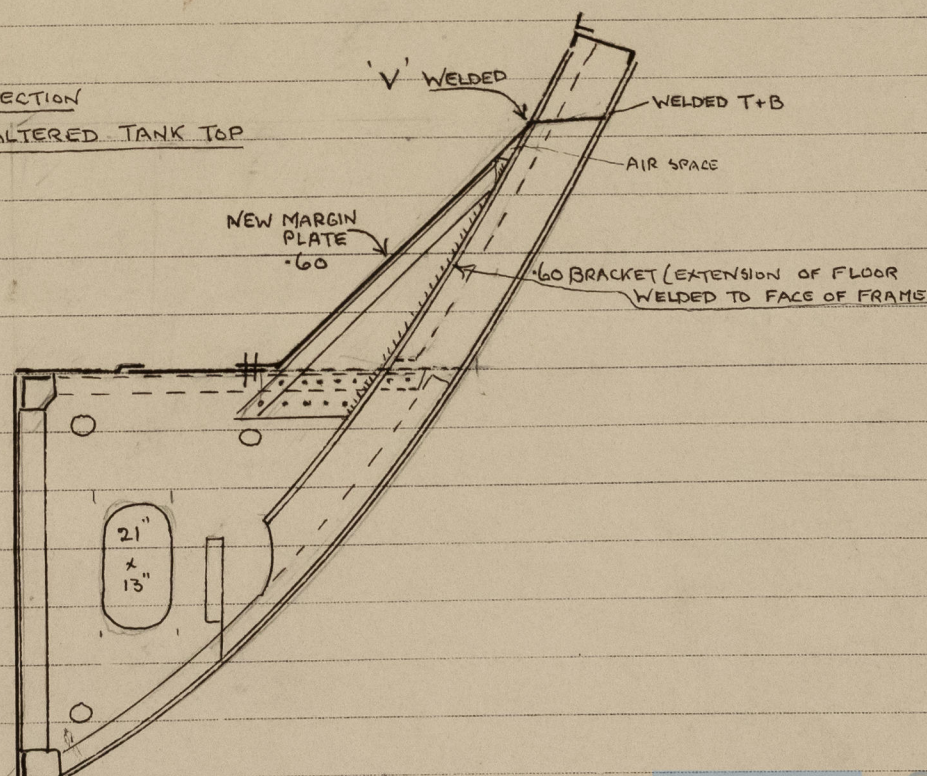 ECTION
ALTERED TANK TOP
'V' WELDED
WELDED T+B
AIR SPACE
NEW MARGIN
PLATE
.60
.60 BRACKET (EXTENSION OF FLOOR
WELDED TO FACE OF FRAME
21"
x
13"